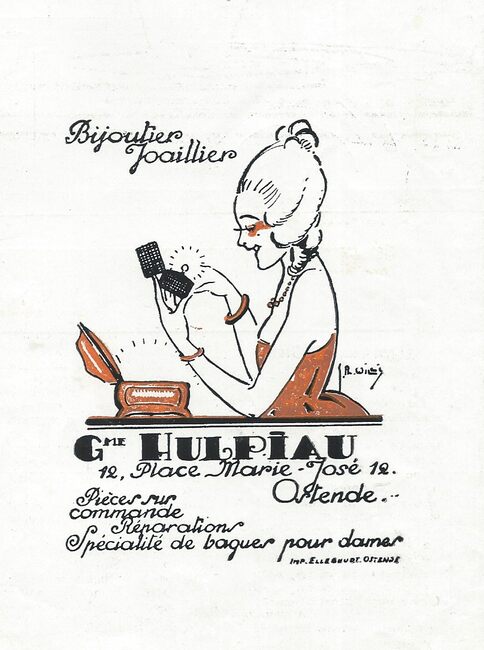 Bijoutier
Joaillier
Gme HULPIAU
12, Place Marie-José 12.
Ostende...
Pièces sur
commande
Réparations
Spécialité de bagues pour dames
IMP. ELLEBOUDT. OSTENDE